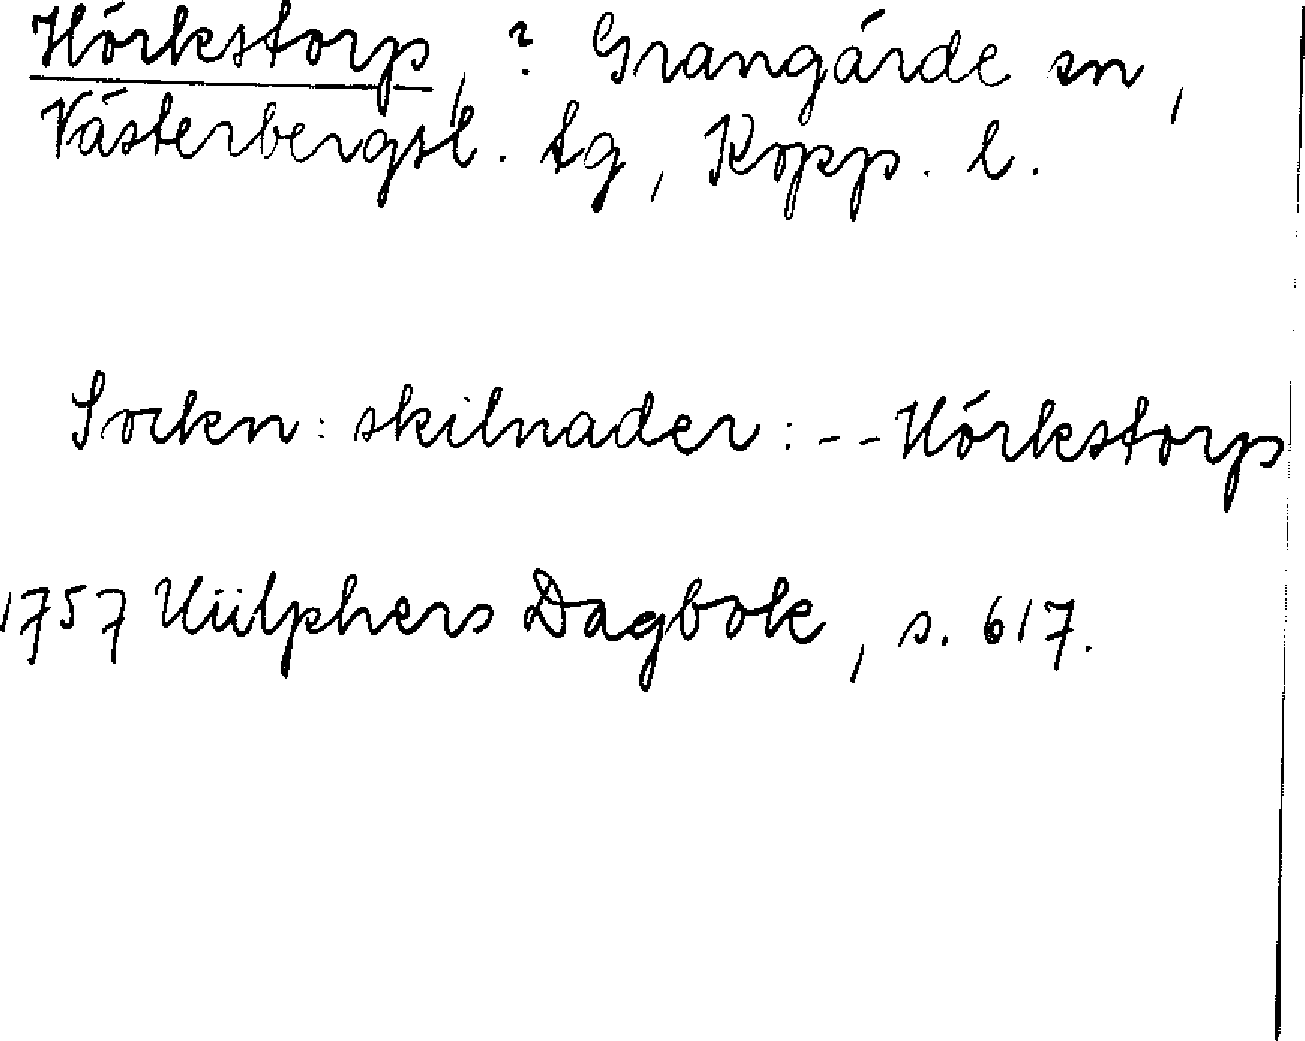 Hörkstorp, ? Grangärde sn,
Västerbergsl. tg, Kopp. l.
Sockn: skilnader: -- Hörkstorp
1757 Hülphers Dagbok, s. 617.